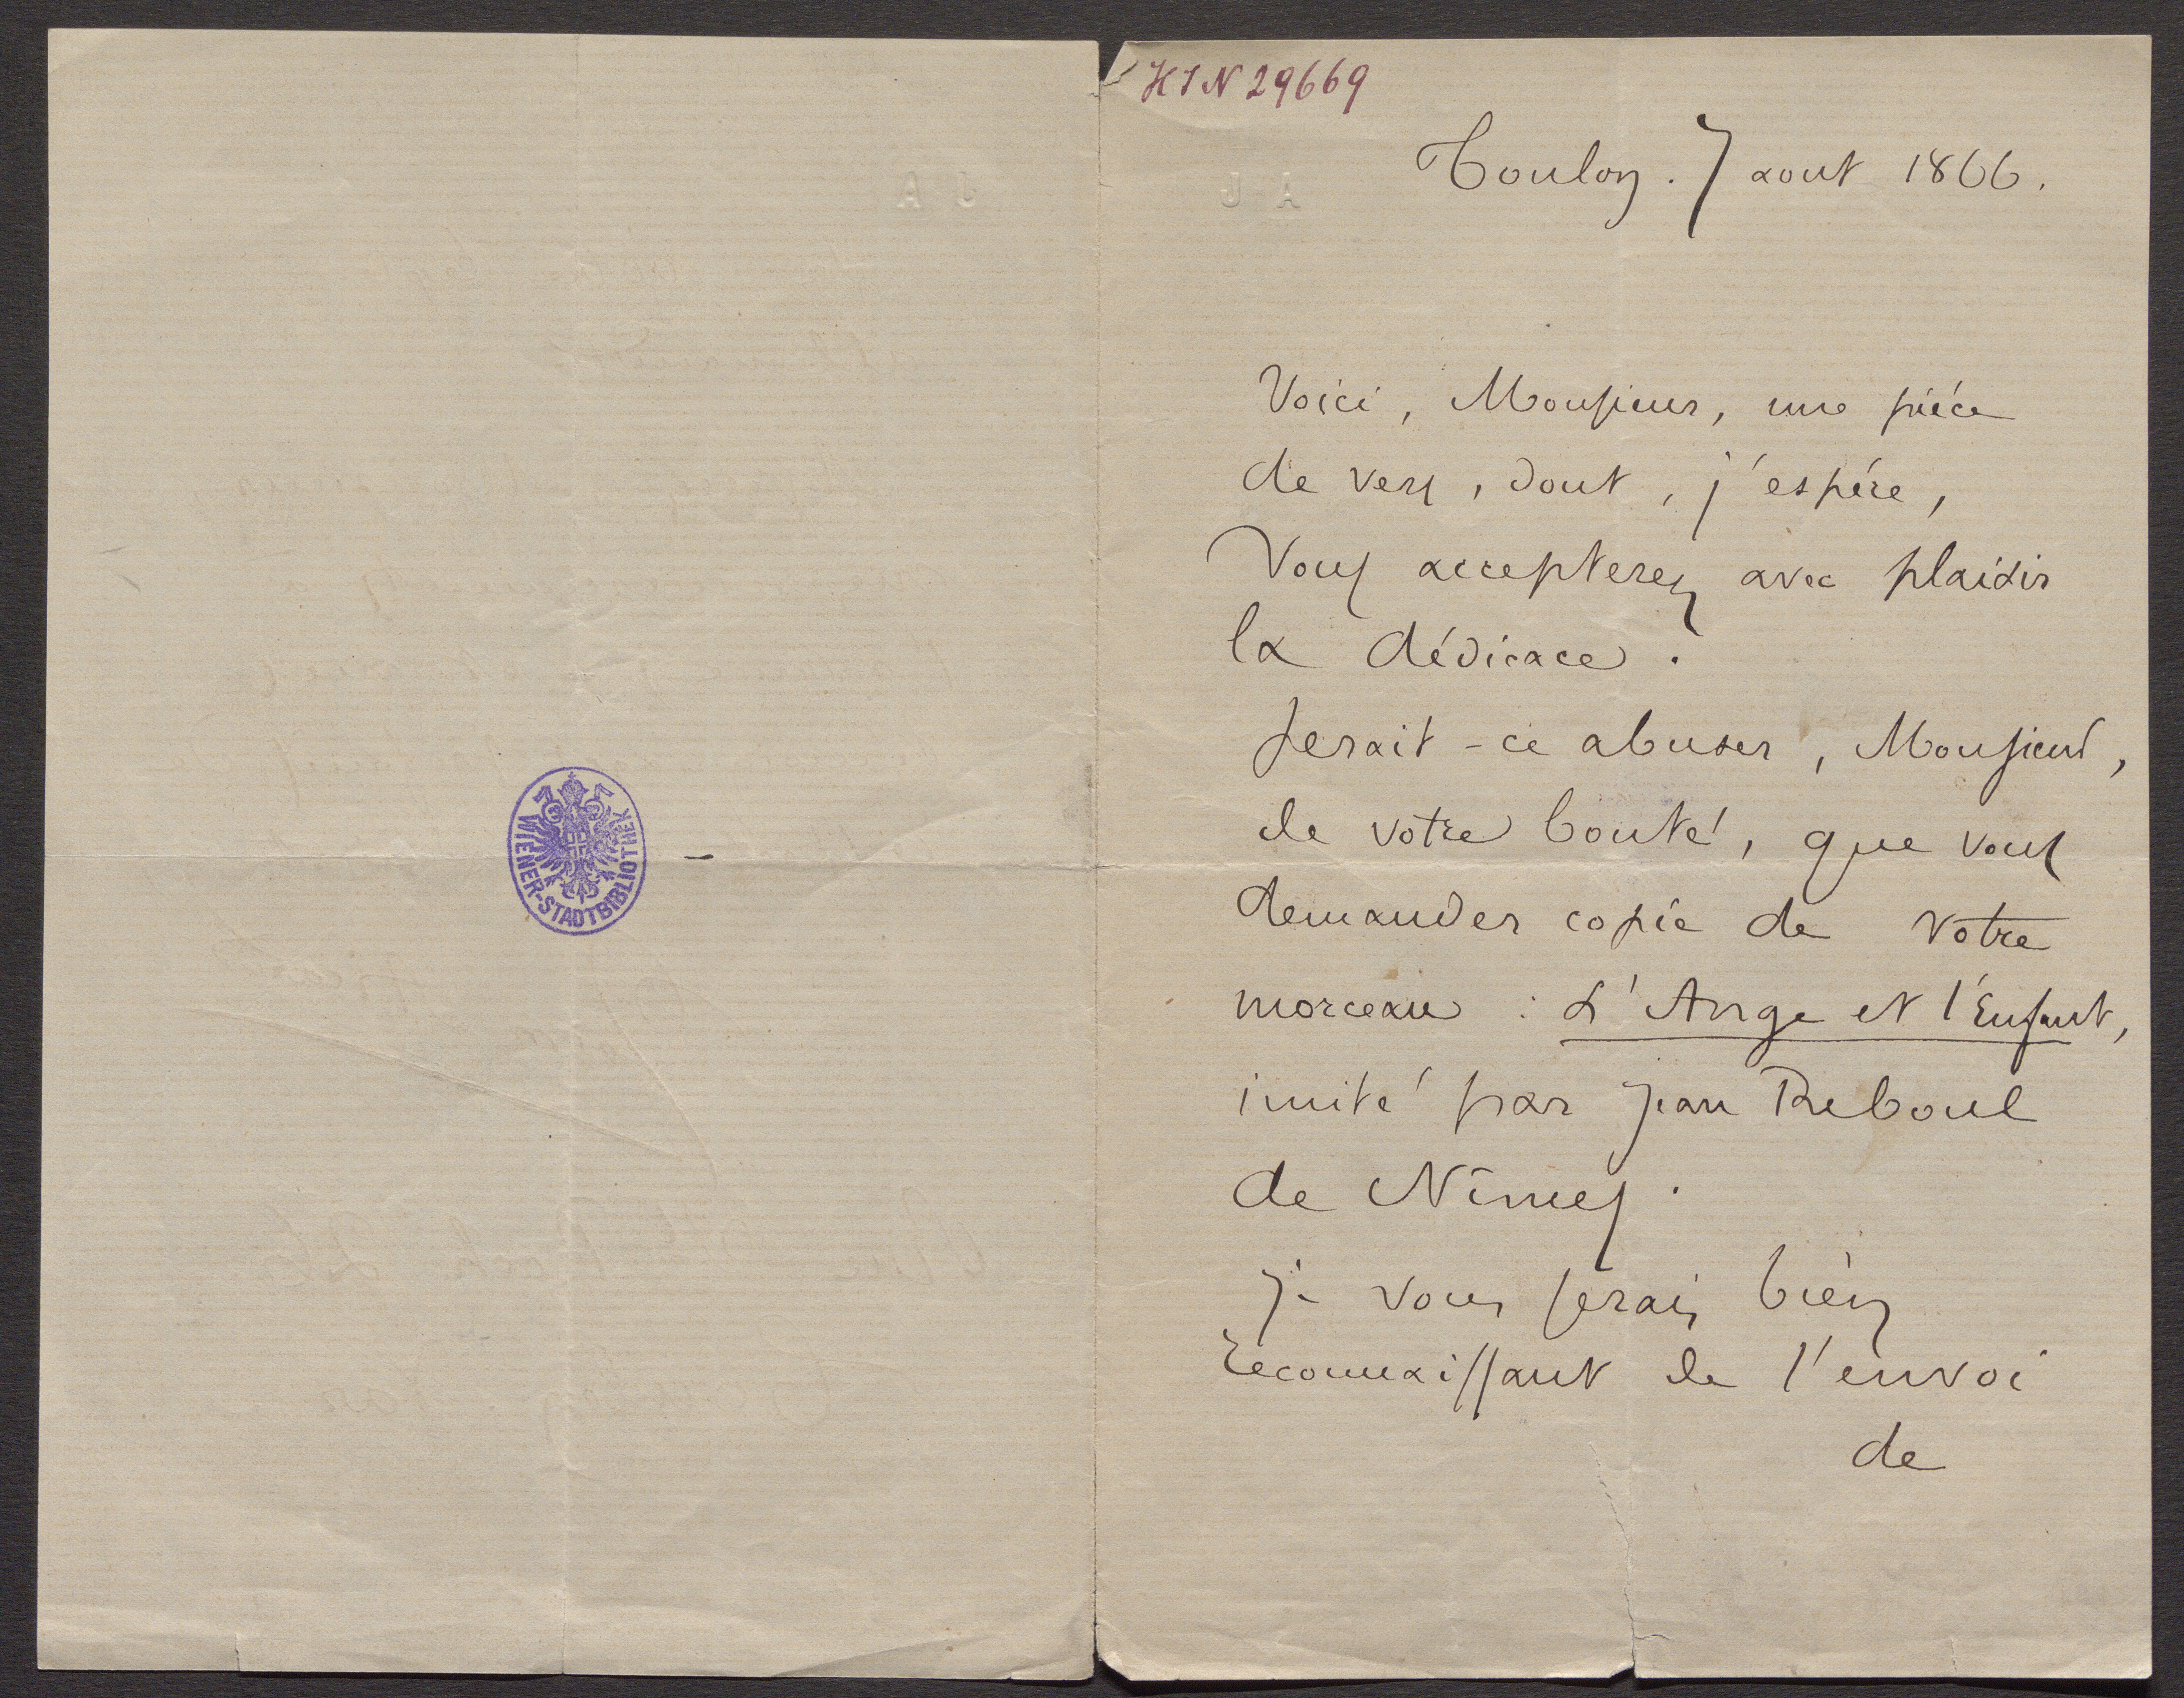 WIENER-STADTBIBLIOTHEK
HIN 29669
J A
Toulon. 7 aout 1866.
Voici, Monsieur, une piéce
de vers, dont, j'espére,
Vous accepterez avec plaisir
la dédicace.
Serait-ce abuser, Monsieur,
de votre bonté, que vous
demander copie de votre
morceau : L'Ange et l'Enfant,
imité par Jean Reboul
de Nîmes.
Je vous serais bien
reconnaissant de l'envoi
de